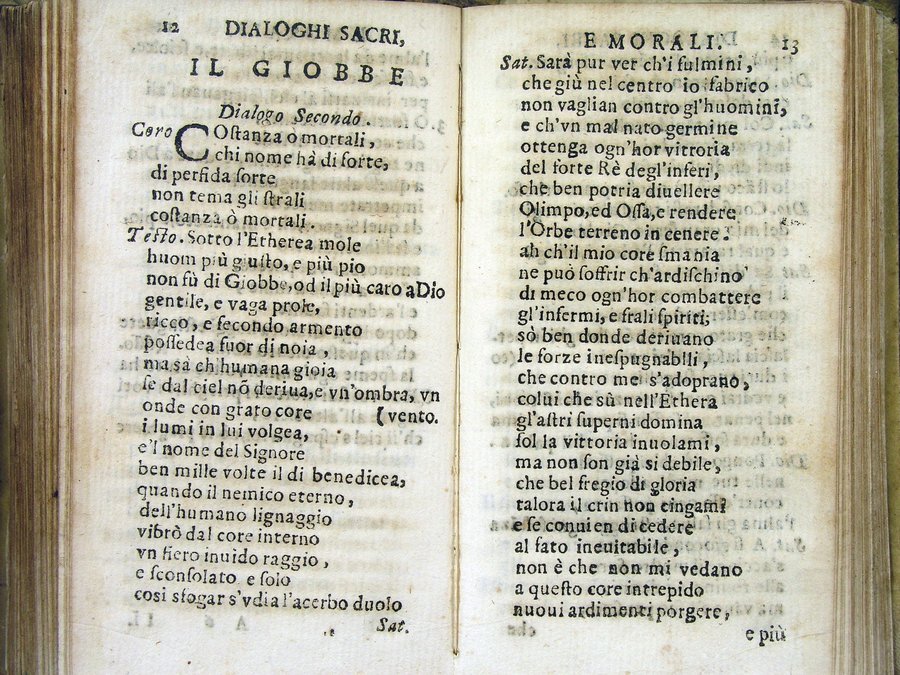 12 DIALOGHI SACRI,
IL GIOBBE
Dialogo Secondo.
Coro COſtanza ò mortali,
chi nome hà di forte,
di perfida ſorte
non tema gli ſtrali
coſtanza ò mortali.
Teſto. Sotto l'Etherea mole
huom più giuſto, e più pio
non fù di Giobbe, od il più caro a Dio
gentile, e vaga prole,
ricco, e fecondo armento
poſſedea fuor di noia,
ma sà ch'humana gioia
ſe dal ciel nõ deriua, e vn'ombra, vn
onde con grato core (vento.
i lumi in lui volgea,
e'l nome del Signore
ben mille volte il di benedicea,
quando il nemico eterno,
dell'humano lignaggio
vibrò dal core interno
vn fiero inuido raggio,
e ſconſolato e ſolo
cosi sfogar s'vdia l'acerbo duolo
Sat.
E MORALI. 13
Sat. Sarà pur ver ch'i fulmini,
che giù nel centro io fabrico
non vaglian contro gl'huomini,
e ch'vn mal nato germine
ottenga ogn'hor vittroria
del forte Rè degl'inferi,
che ben potria diuellere
Olimpo, ed Oſſa, e rendere
l'Orbe terreno in cenere:
ah ch'il mio core ſmania
ne può ſoffrir ch'ardiſchino
di meco ogn'hor combattere
gl'infermi, e frali ſpiriti;
sò ben donde deriuano
le forze ineſpugnabili,
che contro me s'adoprano,
colui che sù nell'Ethera
gl'aſtri ſuperni domina
ſol la vittoria inuolami,
ma non ſon già si debile,
che bel fregio di gloria
talora il crin non cingami
e ſe conuien di cedere
al fato ineuitabile,
non è che non mi vedano
a queſto core intrepido
nuoui ardimenti porgere,
e più